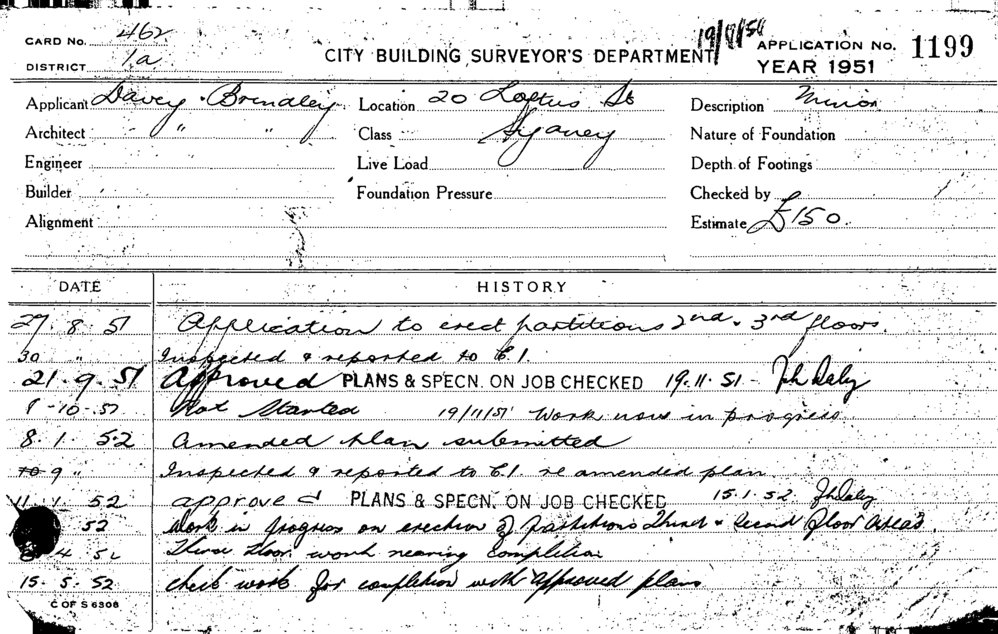 CARD No. 462
DISTRICT 1a
CITY BUILDING SURVEYOR'S DEPARTMENT
APPLICATION No. 1199
YEAR 1951
Applicant Davey & Brindley Location 20 Loftus St Description Minor
Architect " " Class Sydney Nature of Foundation
Engineer Live Load Depth of Footings
Builder Foundation Pressure Checked by
Alignment Estimate £150.
DATE HISTORY
27. 8. 51 Application to erect partitions 2nd & 3rd floors.
30 " Inspected & reported to C.I.
21. 9. 51 Approved PLANS & SPECN. ON JOB CHECKED 19.11.51
8-10-51 Not Started 19/11/51 Work now in progress
8. 1. 52 Amended plan submitted
9 " Inspected & reported to C.I. re amended plan
11. 1. 52 approved PLANS & SPECN. ON JOB CHECKED 15.1.52
52 Work in progress on erection of partitions Third & Second floor areas.
4. 52 Third floor work nearing completion
15. 5. 52 Check work for completion with approved plans
C OF S 6306